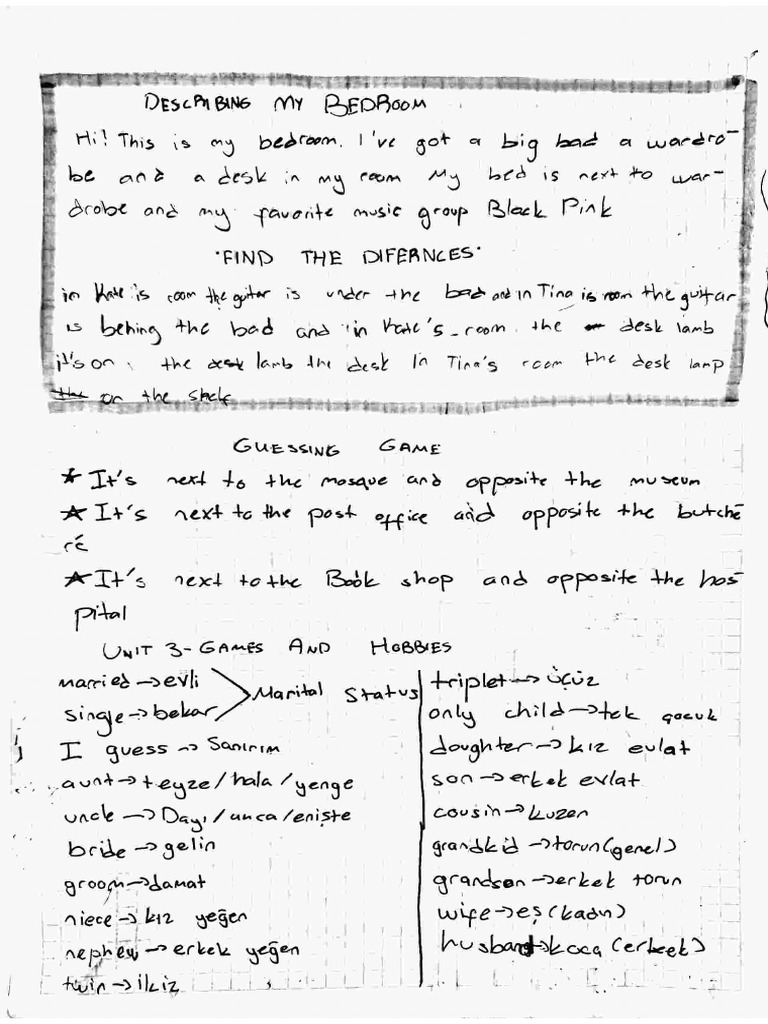 DESCRIBING MY BEDROOM
Hi! This is my bedroom. I've got a big bad a wardro-
be and a desk in my room My bed is next to war-
drobe and my favorite music group Black Pink
"FIND THE DIFERNCES"
in Kate is room the guitar is under the bad and in Tina is room the guitar
is behing the bad and in Kate's room the desk lamb
it's on the lamb the desk In Tina's room the desk lamp
on the
GUESSING GAME
* It's next to the mosque and opposite the museum
* It's next to the post office and opposite the butche
re
* It's next to the Book shop and opposite the hos-
pital
UNIT 3-GAMES AND HOBBIES
married → evli
single → bekar
Marital Status
I guess → Sanırım
aunt → teyze/hala/yenge
uncle → Dayı/amca/enişte
bride → gelin
groom → damat
niece → kız yeğen
nephew → erkek yeğen
twin → İkiz
triplet → üçüz
only child → tek çocuk
doughter → kız evlat
son → erkek evlat
cousin → kuzen
grandkid → torun(genel)
grandson → erkek torun
wife → eş(kadın)
husband → koca(erkek)